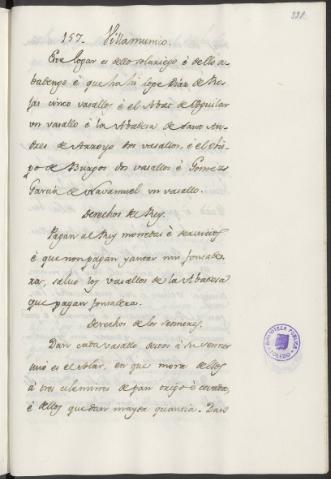 221.
157. Villamunio.
Este logar es dello solariego è dello a-
badengo è que ha hi Lope Diaz de Ro-
jas cinco vasallos è el Abat de Aguilar
un vasallo è la Abadesa de Sant An-
dres de Arroyo dos vasallos, è el obis-
po de Burgos dos vasallos è Gomez
Garcia de Navamuel un vasallo.
Derechos del Rey.
Pagan al Rey monedas è servicios
è que non pagan yantar nin fonsade-
ra, salvo los vasallos de la Abadesa
que pagan fonsadera.
Derechos de los senneres.
Dan cada vasallo destos à su senner
cuio es el solar, en que mora dellos
à tres celemines de pan trigo è cevada,
è dellos que dan mayor quantia. Dan
BIBLIOTECA PUBLICA
TOLEDO